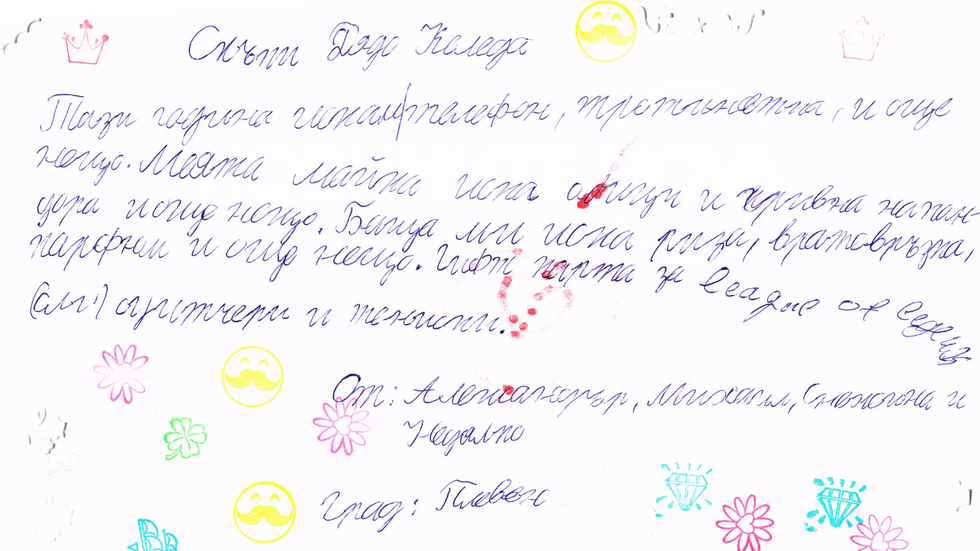 Скъпи Дядо Коледа
Тази година искам телефон, тротинетка, и още
нещо. Моята майка иска и кривна напан-
дора и още нещо. Баща ми иска риза, вратовръзка,
парфюм и още нещо. Гифт карта за league of legends
суитчери и тениски.
От: Александър, Михаил, Снежана и
Недялко
Град: Плевен